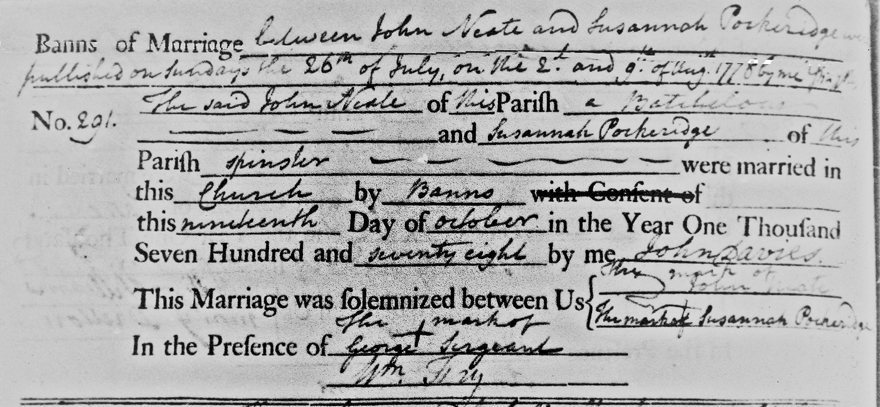 Banns of Marriage between John Neate and Susannah Pockeridge
published on Sundays the 26th of July, on the 2d. and 9th. of Augt. 1778 by me
The said John Neate of this Parish a Batchelor
No. 291. and Susannah Pockeridge of this
Parish spinster were married in
this Church by Banns with Consent of
this nineteenth Day of october in the Year One Thousand
Seven Hundred and seventy eight by me John Davies
The mark of
This Marriage was solemnized between Us John Neate
The mark of Susannah Pockeridge
The mark of
In the Presence of George Sergeant
Wm.